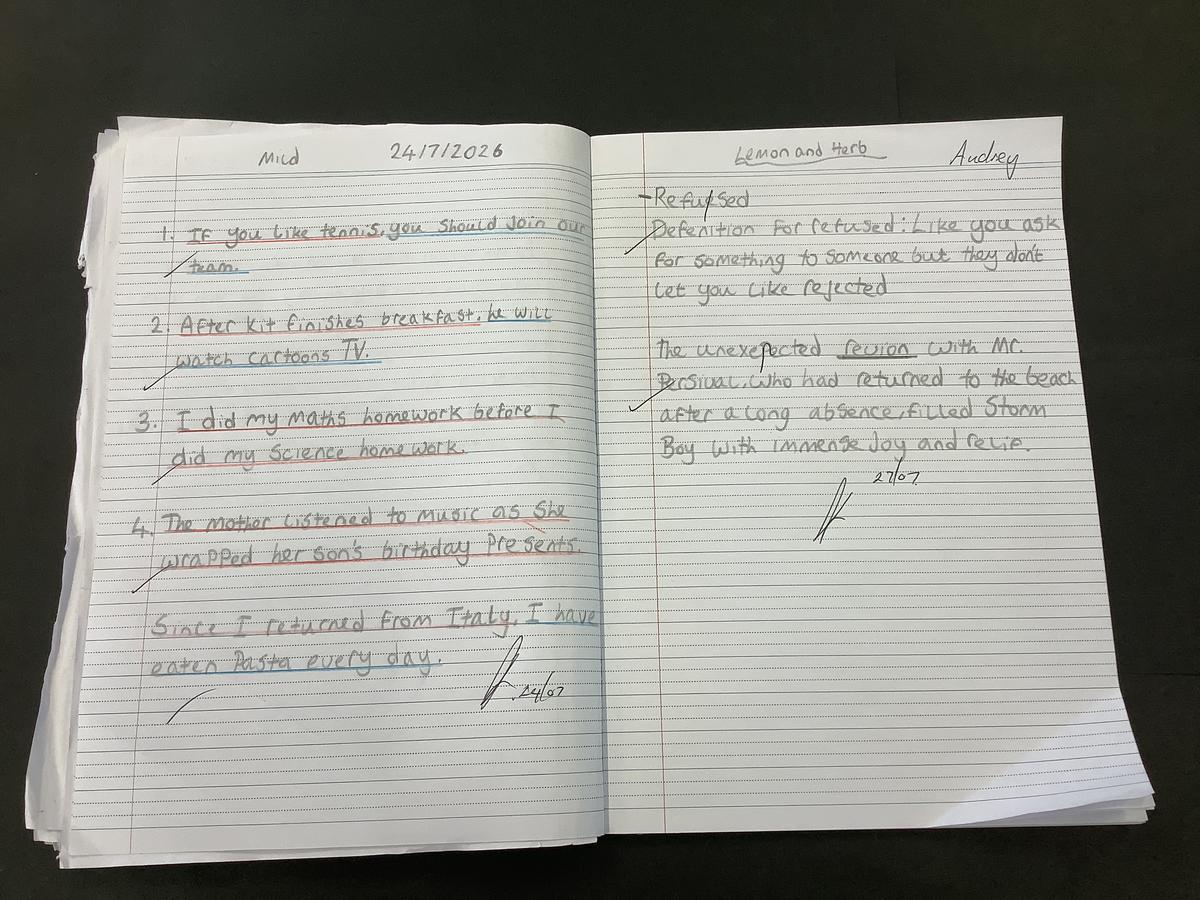 Mild 24/7/2026
1. IF you Like tennis, you should join our
team.
2. After kit finishes breakfast, he will
watch cartoons TV.
3. I did my Maths homework before I
did my Science homework.
4. The Mother Listened to Music as She
wrapped her son's birthday Presents.
Since I returned from Italy, I have
eaten Pasta every day.
24/07
Lemon and Herb Audrey
- Refused
Defenition For refused: Like you ask
for something to someone but they don't
let you like rejected
The unexepected reuion with Mr.
Persival, who had returned to the beach
after a long absence, filled Storm
Boy with immense Joy and relip.
27/07